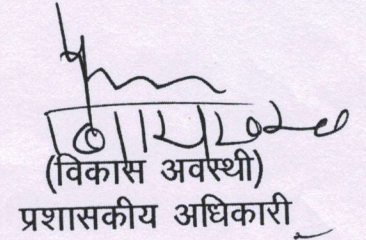 (विकास अवस्थी)
प्रशासकीय अधिकारी